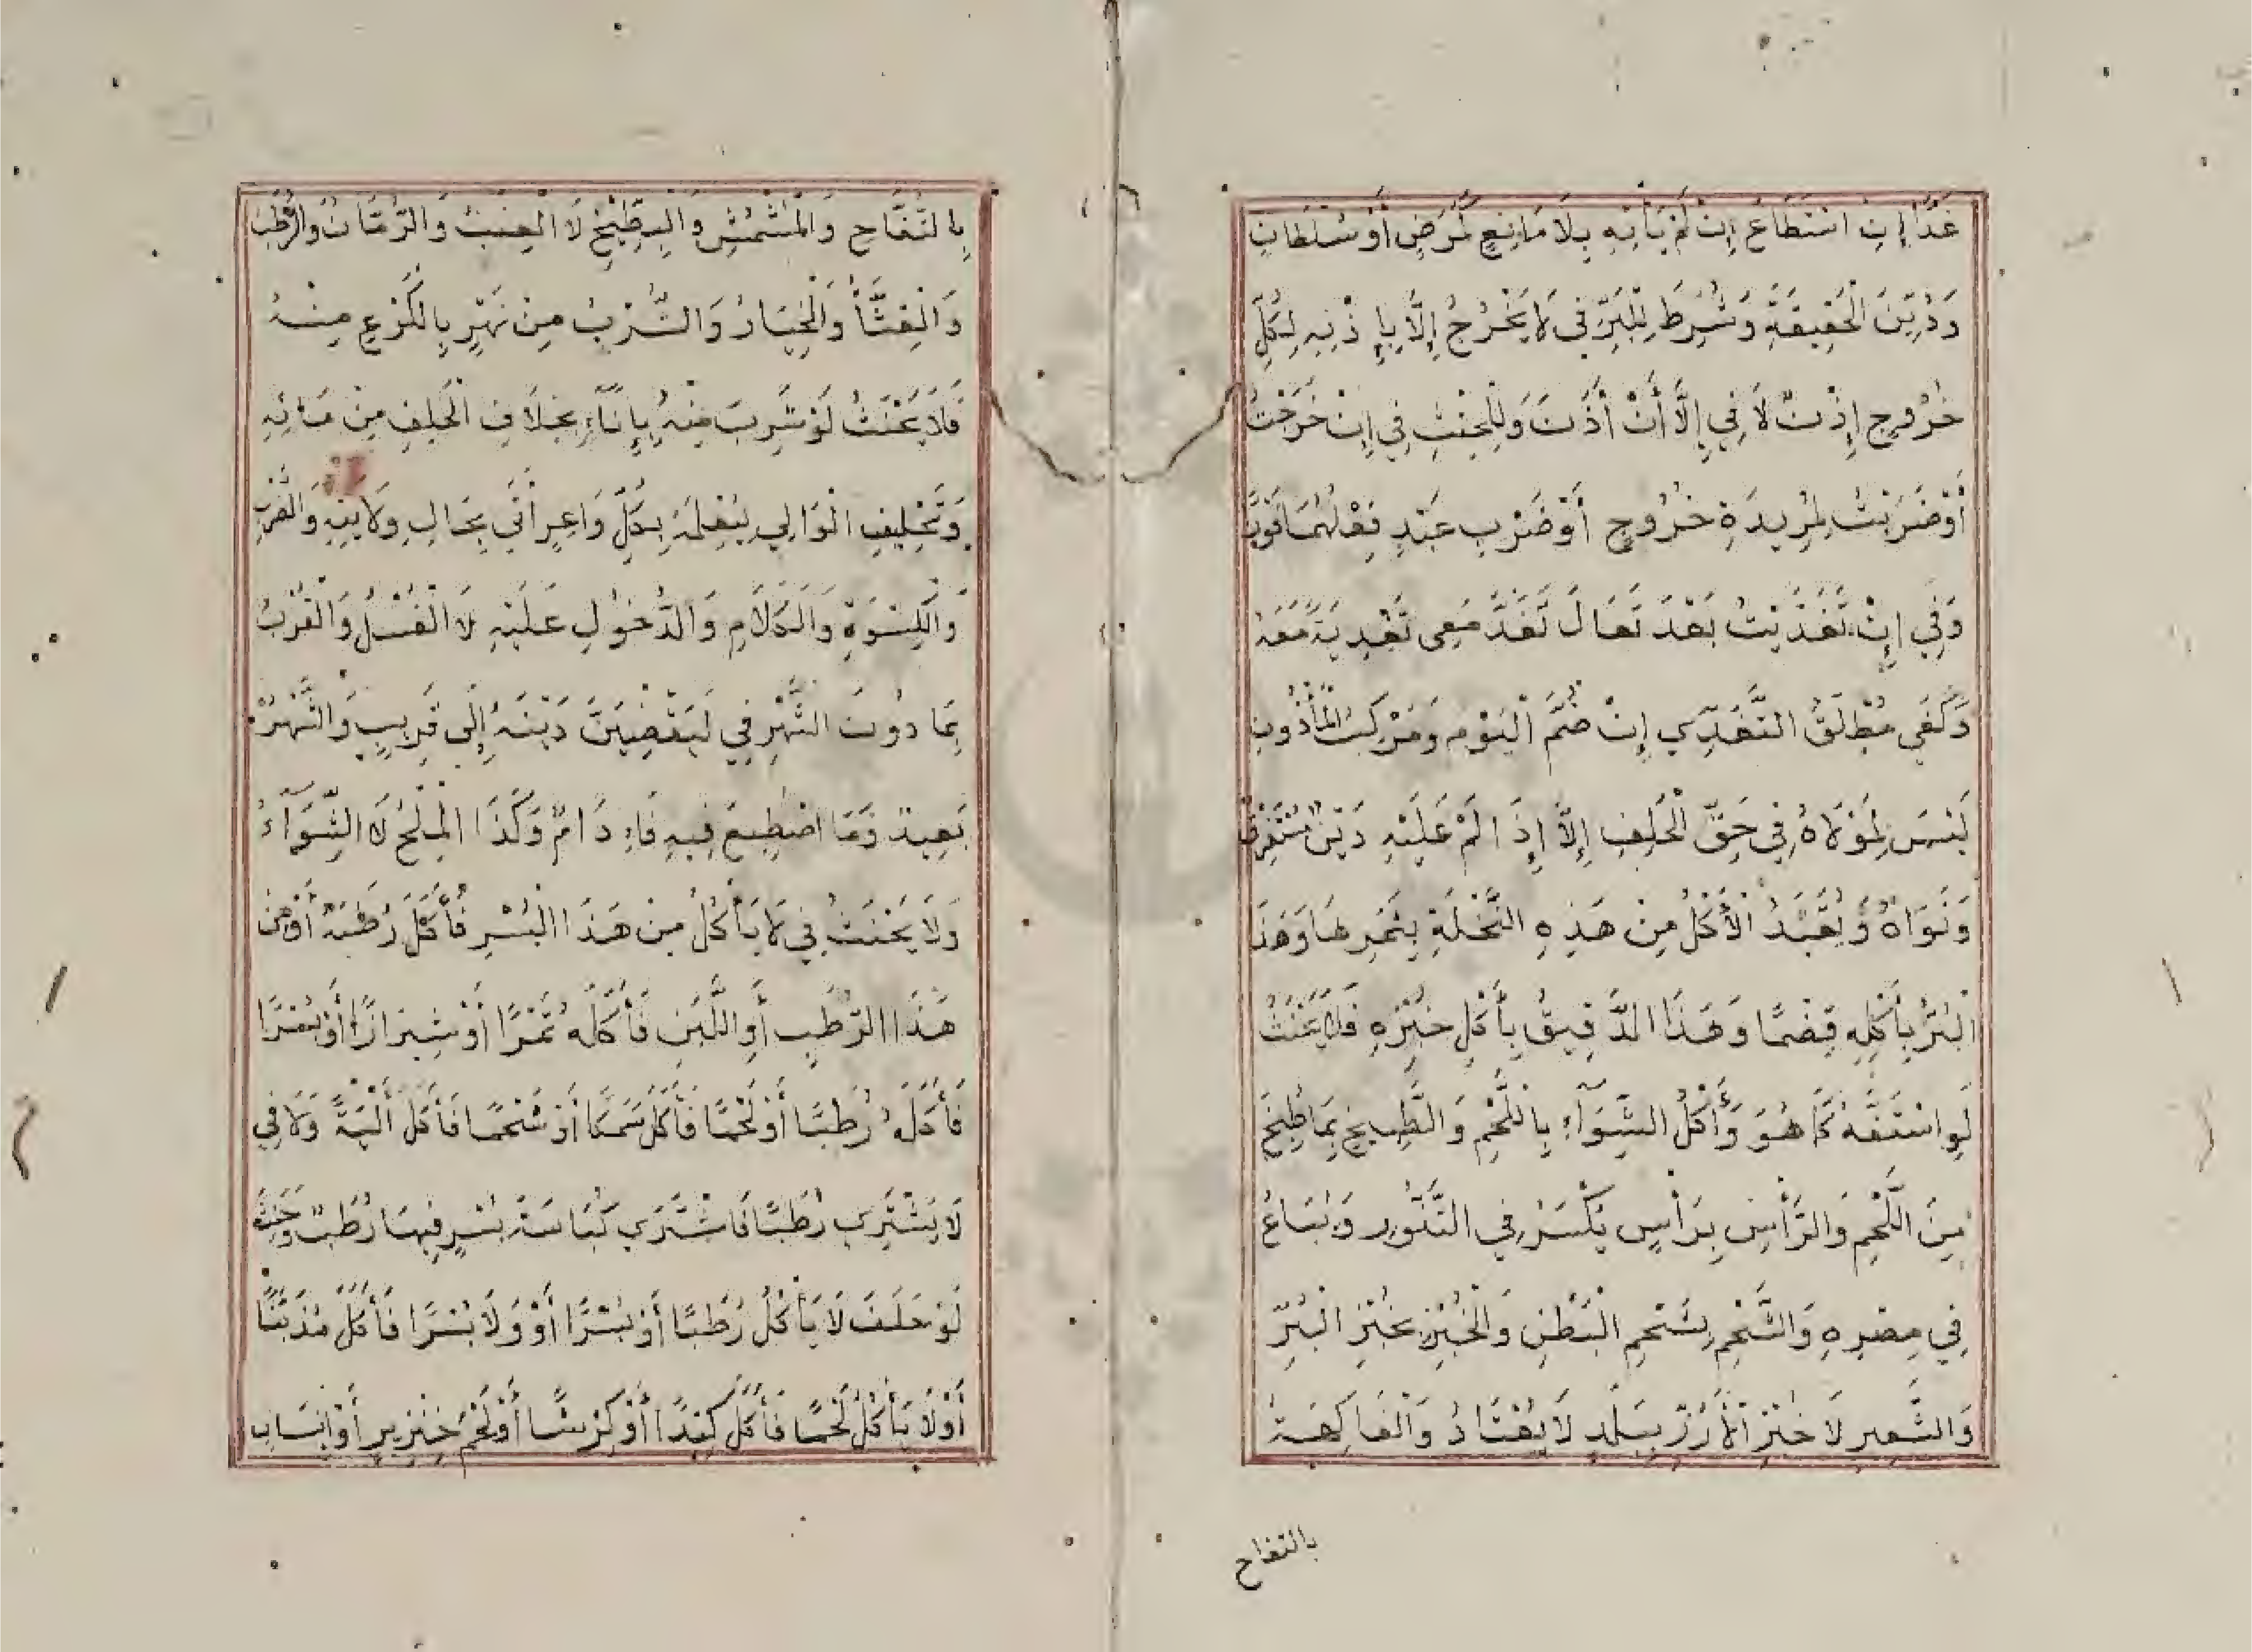 غَدًا إِنِ اسْتَطَاعَ إِنْ لَمْ يَأْتِهِ بِلَا مَانِعٍ لِمَرَضٍ أَوْ سُلْطَانٍ
وَدُيِّنَ الْحَقِيقَةِ وَشُرِطَ لِلْبِرِّ فِي لَا يَخْرُجُ إِلَّا بِإِذْنِهِ لِكُلِّ
خُرُوجٍ إِذْنٌ لَا فِي إِلَّا أَنْ أَذَنَ وَلِلْحِنْثِ فِي إِنْ خَرَجْتُ
أَوْ ضَرَبْتُ لِمُرِيدَةِ خُرُوجٍ أَوْ ضَرْبِ عَبْدٍ فِعْلُهُمَا فَوْرًا
وَفِي إِنْ تَغَدَّيْتُ بَعْدَ تَعَالَ تَغَدَّ مَعِي تَغْدِيَةً مَعَهُ
وَكَفَى مُطْلَقُ التَّغَدِّي إِنْ ضُمَّ الْيَوْمَ وَمَرْكَبُ الْمَأْذُونِ
لَيْسَ لِمَوْلَاهُ فِي حَقِّ الْحَلِفِ إِلَّا إِذَا لَمْ عَلَيْهِ دَيْنٌ مُسْتَغْرِقٌ
وَنَوَاهُ وَيُقَيَّدُ الْأَكْلُ مِنْ هَذِهِ النَّخْلَةِ بِثَمَرِهَا وَهَذَا
الْبُرُّ بِأَكْلِهِ قَضْمًا وَهَذَا الدَّقِيقُ بِأَكْلِ خُبْزِهِ فَلَا يَحْنَثُ
لَوِ اسْتَفَّهُ كَمَا هُوَ وَأَكْلُ الشِّوَآءِ بِاللَّحْمِ وَالطَّبِيخِ بِمَا طُبِخَ
مِنَ اللَّحْمِ وَالرَّأْسِ بِرَأْسٍ يُكْسَرُ فِي التَّنُّورِ وَيُبَاعُ
فِي مِصْرِهِ وَالشَّحْمِ بِشَحْمِ الْبَطْنِ وَالْخُبْزِ بِخُبْزِ الْبُرِّ
وَالشَّعِيرِ لَا خُبْزِ الْأَرُزِّ بِبَلَدٍ لَا يُعْتَادُ وَالْفَاكِهَةُ
بالتفاح
بِالتُّفَّاحِ وَالْمُشْمُشِ وَالْبِطِّيْخِ لَا الْعِنَبُ وَالرُّمَّانُ وَالرُّطَبُ
وَالْقِثَّأُ وَالْخِيَارُ وَالشُّرْبُ مِنْ نَهْرٍ بِالْكَرْعِ مِنْهُ
فَلَا يَحْنَثُ لَوْ شَرِبَ مِنْهُ بِإِنَآءٍ بِخِلَافِ الْحَلِفِ مِنْ مَائِهِ
وَتَحْلِيفِ الْوَالِي لِيُعْلِمَهُ بِكُلِّ دَاعِرٍ أَتَى بِحَالِ وِلَايَتِهِ وَالضَّرْبِ
وَالْكِسْوَةِ وَالْكَلَامِ وَالدُّخُولِ عَلَيْهِ لَا الْغُسْلُ وَالْقُرْبُ
بِمَا دُونَ الشَّهْرِ فِي لَيَقْضِيَنَّ دَيْنَهُ إِلَى قَرِيبٍ وَالشَّهْرُ
بَعِيدٌ وَمَا اصْطُبِغَ فِيهِ فَإِدَامٌ وَكَذَا الْمِلْحُ لَا الشِّوَآءُ
وَلَا يَحْنَثُ فِي لَا يَأْكُلُ مِنْ هَذَا الْبُسْرِ فَأَكَلَ رُطَبَهُ أَوْ مِنْ
هَذَا الرُّطَبِ أَوِ اللَّبَنِ فَأَكَلَهُ تَمْرًا أَوْ شِيرَازًا أَوْ بُسْرًا
فَأَكَلَهُ رُطَبًا أَوْ لَحْمًا فَأَكَلَ سَمَكًا أَوْ شَحْمًا فَأَكَلَ أَلْيَةً وَلَا فِي
لَا يَشْتَرِي رُطَبًا فَاشْتَرَى كِبَاسَةَ بُسْرٍ فِيهَا رُطَبٌ وَحَنِثَ
لَوْ حَلَفَ لَا يَأْكُلُ رُطَبًا أَوْ بُسْرًا أَوْ وَلَا بُسْرًا فَأَكَلَ مُذَنِّبًا
أَوْ لَا يَأْكُلُ لَحْمًا فَأَكَلَ كَبِدًا أَوْ كِرْشًا أَوْ لَحْمَ خِنْزِيرٍ أَوْ إِنْسَانٍ